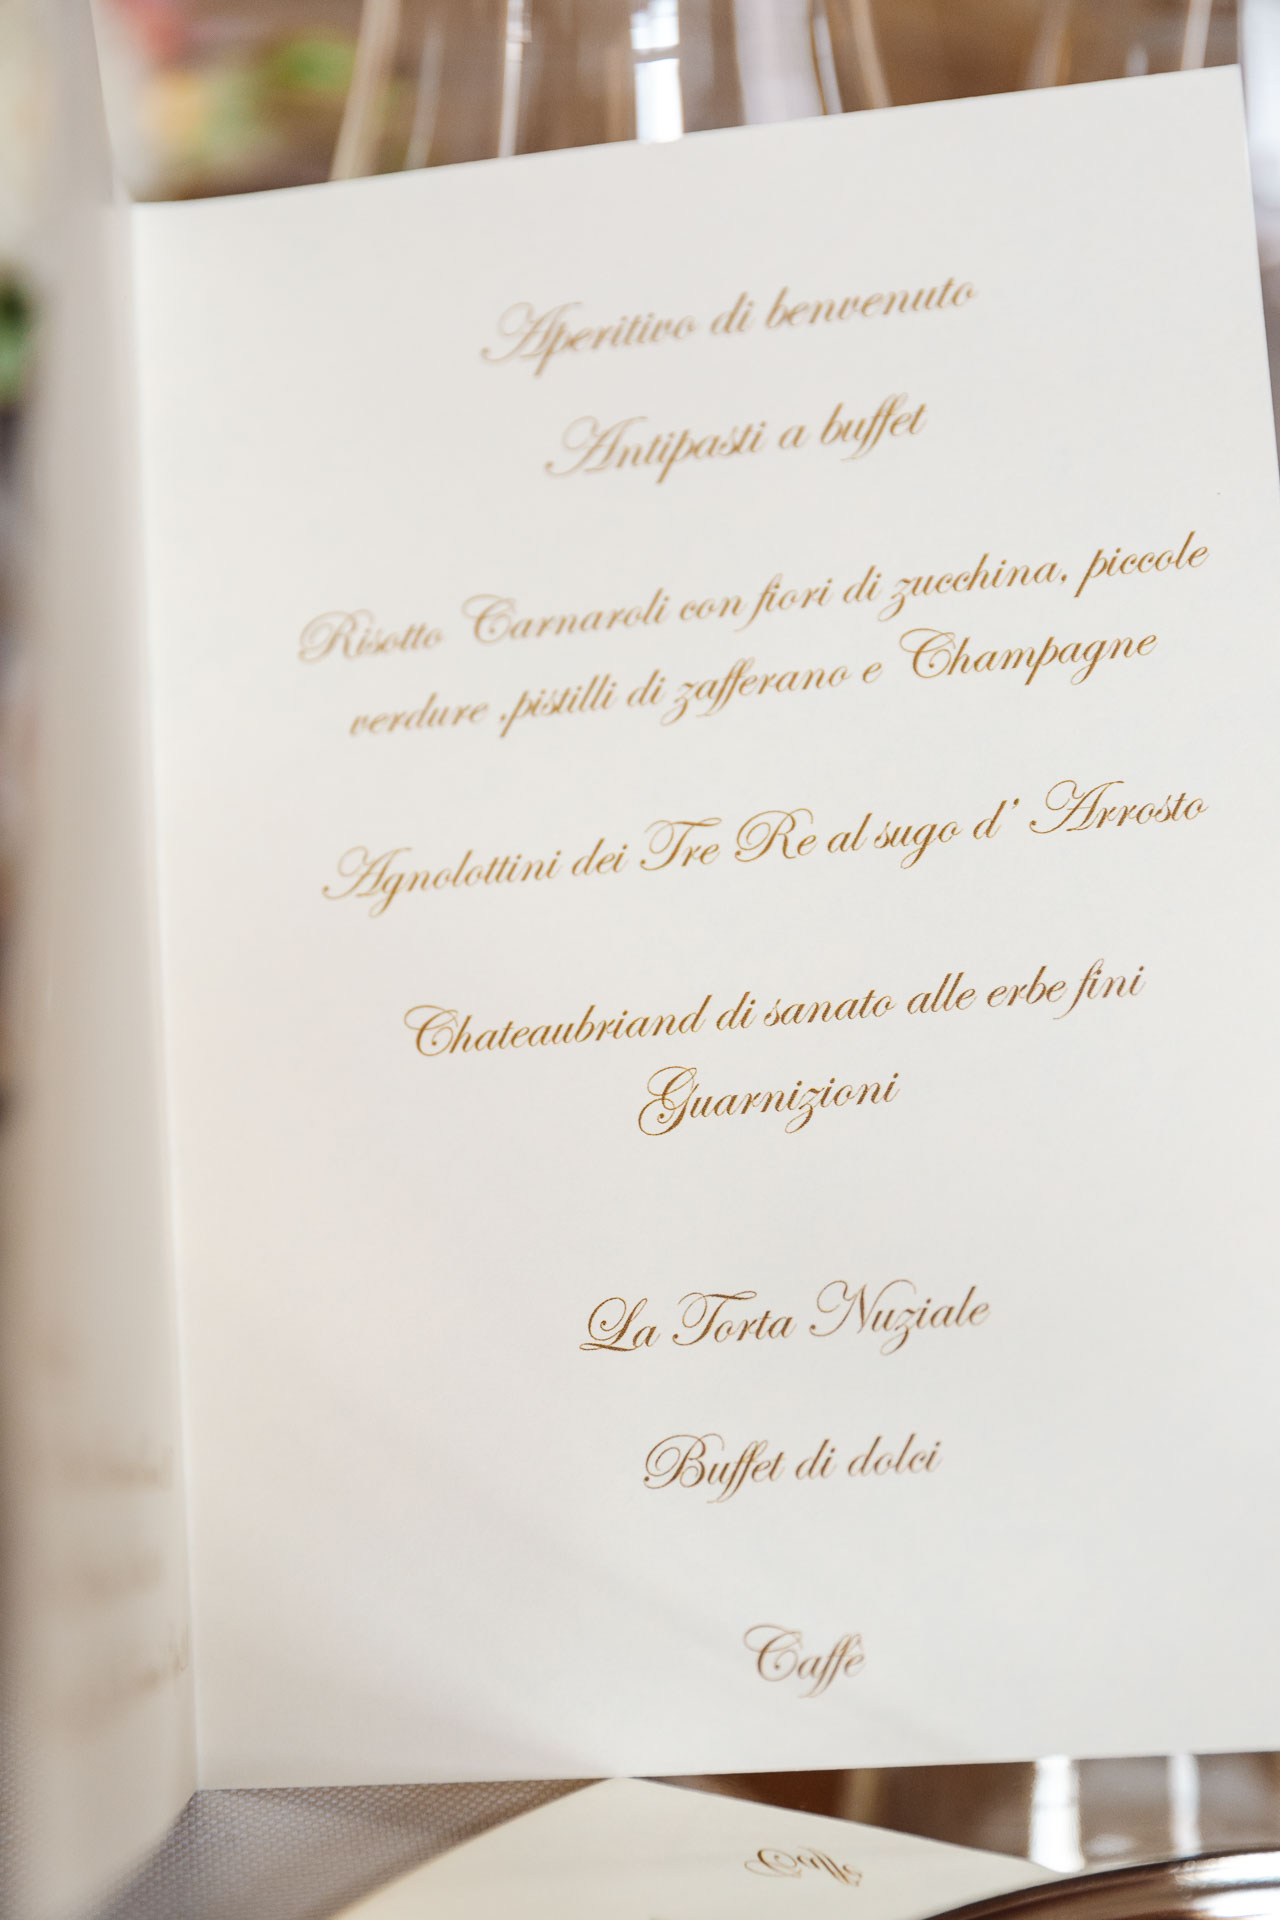 Aperitivo di benvenuto
Antipasti a buffet
Risotto Carnaroli con fiori di zucchina, piccole
verdure ,pistilli di zafferano e Champagne
Agnolottini dei Tre Re al sugo d' Arrosto
Chateaubriand di sanato alle erbe fini
Guarnizioni
La Torta Nuziale
Buffet di dolci
Caffè
Caffè